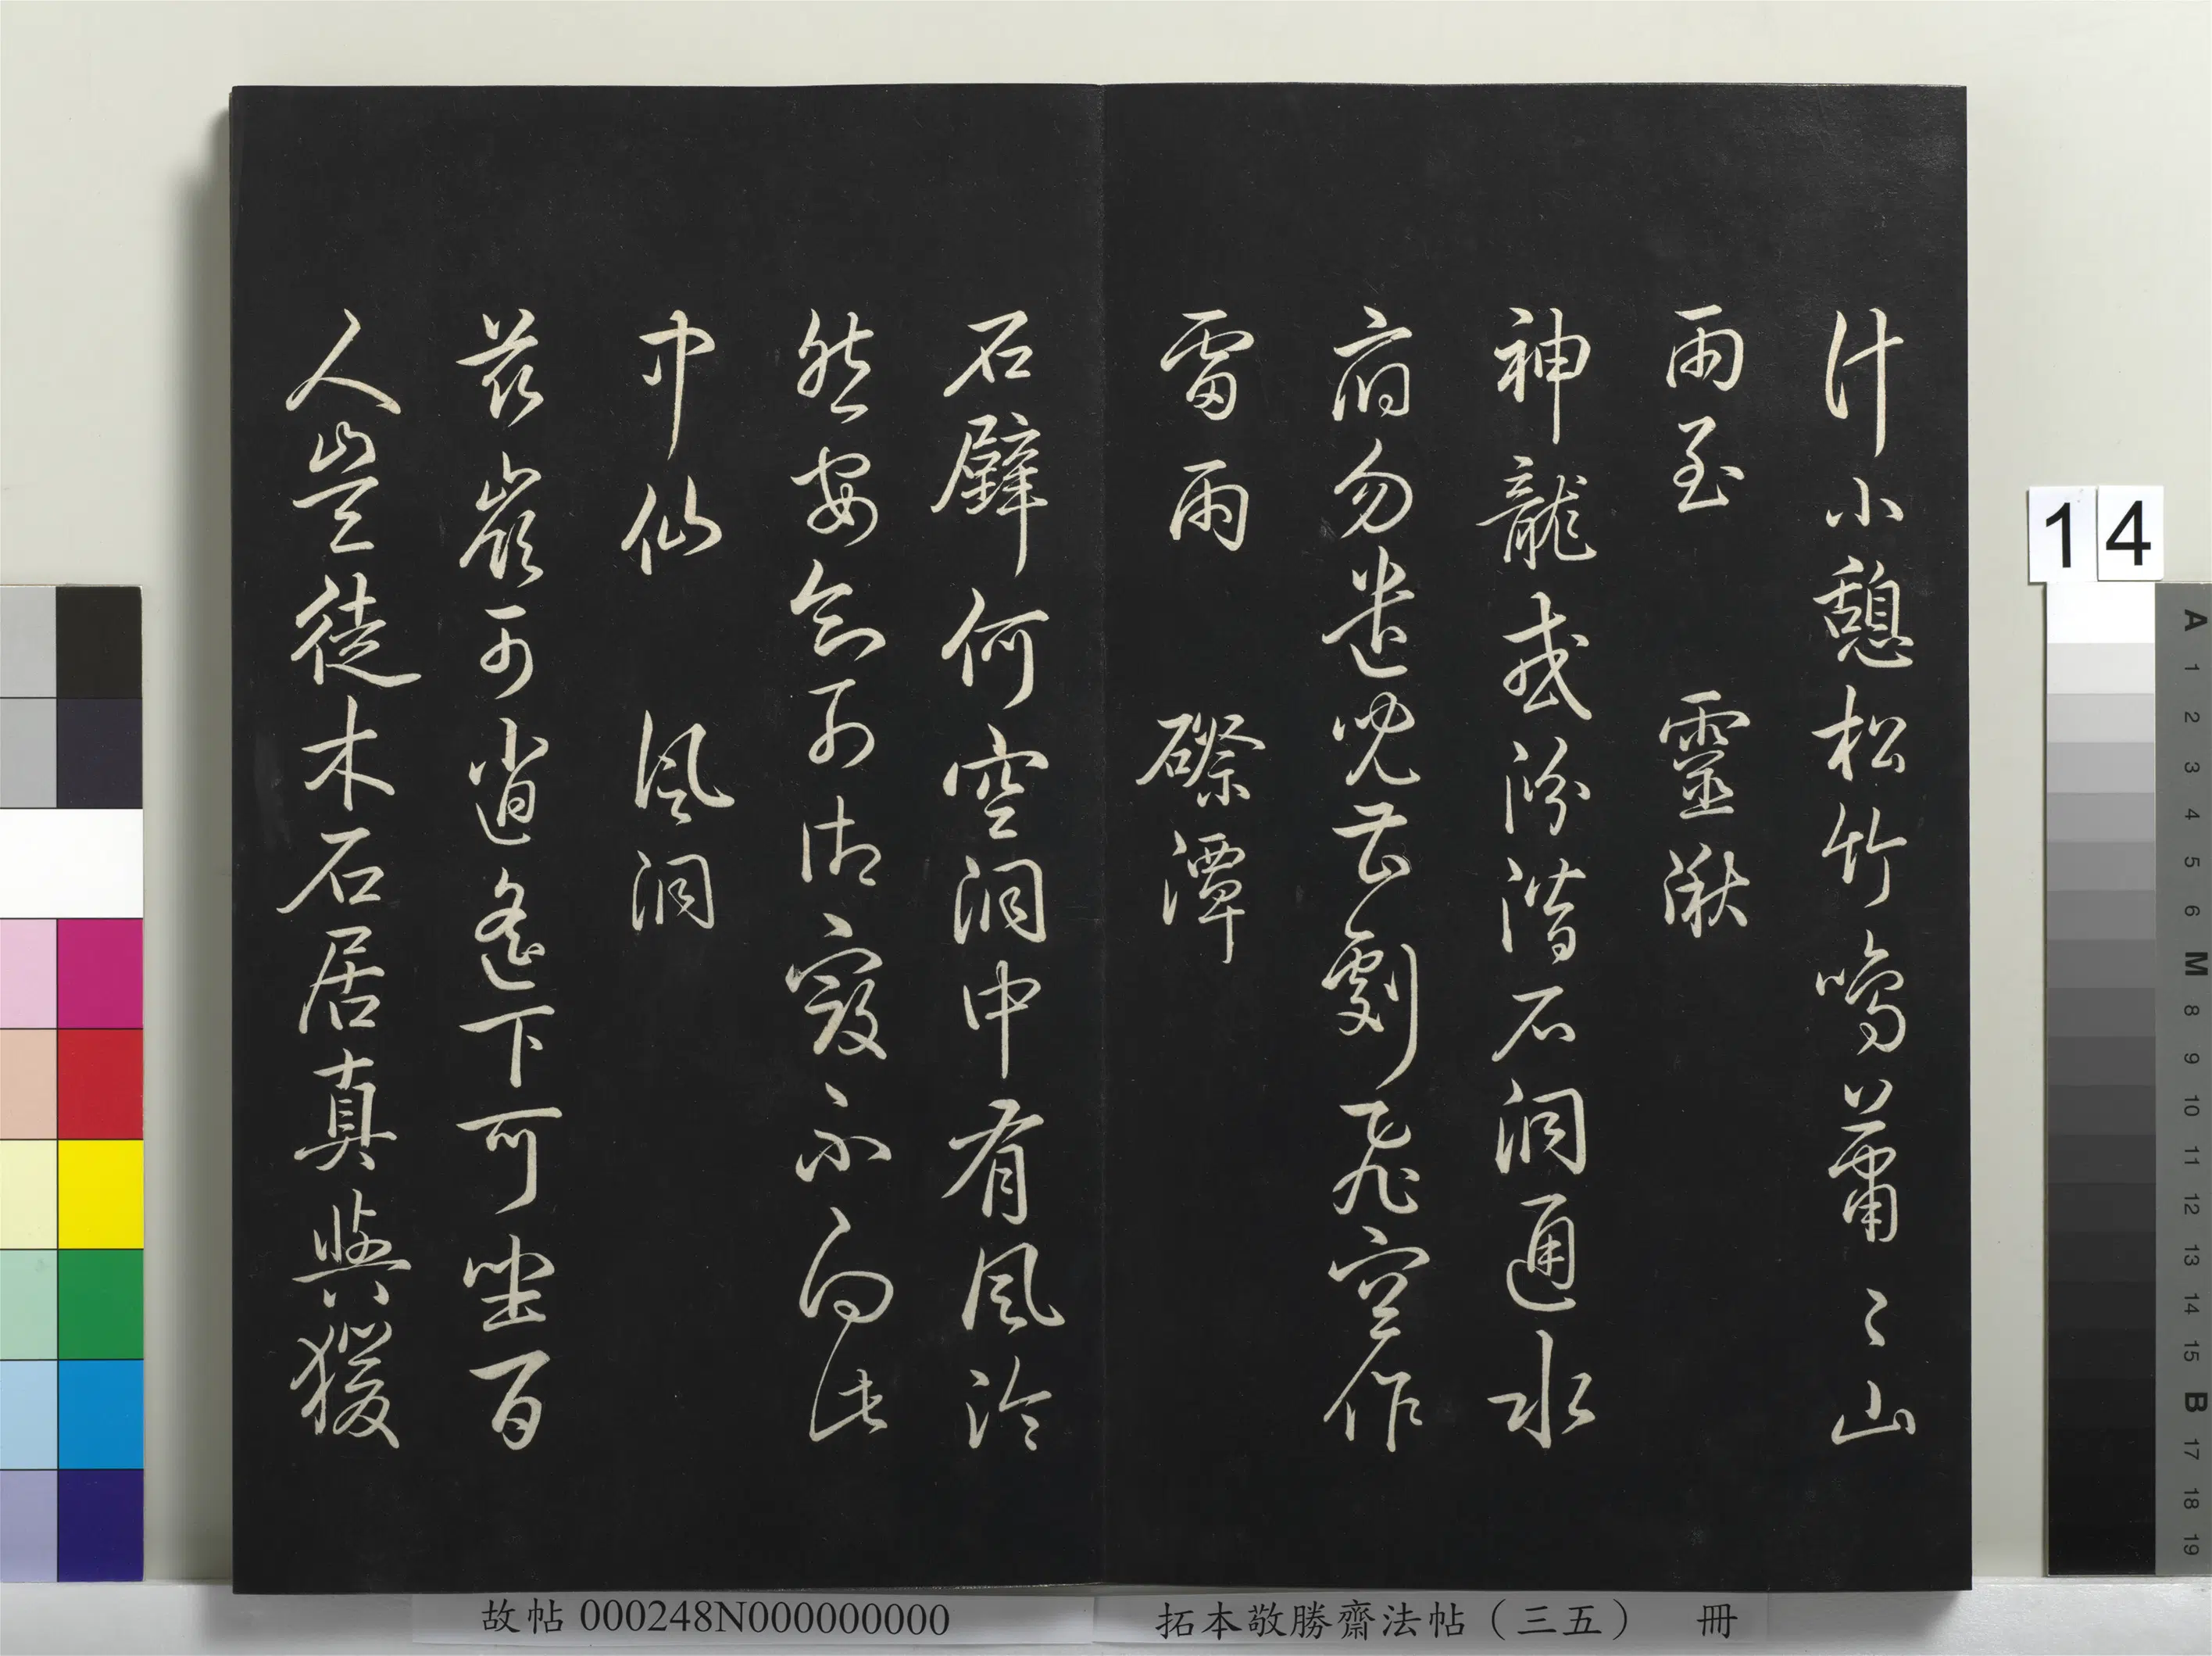 小憩松竹鳴蕭〻山
雨至　靈湫
神龍或潛石洞通水
府勿遣兒曹劇飛空作
雷雨　磜潭
石壁何空洞中有風泠
然安知列御寇不向此
中仙　風洞
茲巖可逍遙下可坐百
人豈徒木石居真與猨
14
故帖 000248N000000000
拓本敬勝齋法帖（三五）　冊
A 1 2 3 4 5 6 M 8 9 10 11 12 13 14 15 B 17 18 19